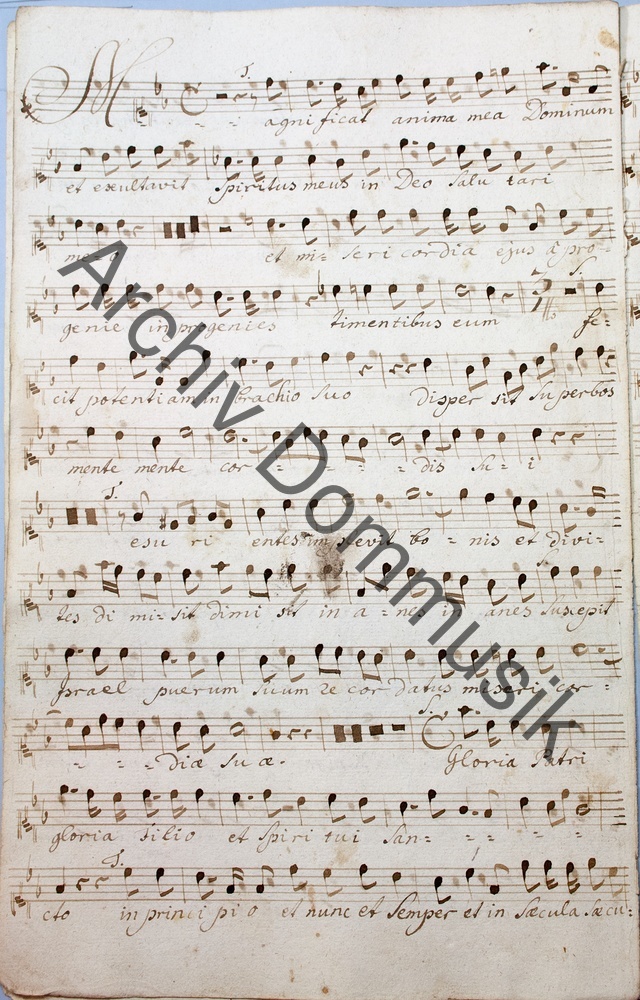 T.
Magnificat anima mea Dominum
et exultavit Spiritus meus in Deo Salu tari
meo et mi- seri cordia ejus à pro-
S.
genie in progenies timentibus eum fe-
cit potentiam in brachio suo Disper sit Superbos
mente mente cor - - - - dis su - i
T.
esu ri entes im plevit bo - nis et divi-
tes di mi-sit dimi sit in a - nes in anes Suscepit
Israel puerum Suum re cor datus miseri cor-
- - - diæ su æ.
S.
Gloria Patri
gloria Filio et Spiri tui San- - - - -
T.
cto in princi pi o et nunc et Semper et in Sæcula Sæcu-
Archiv Dommusik